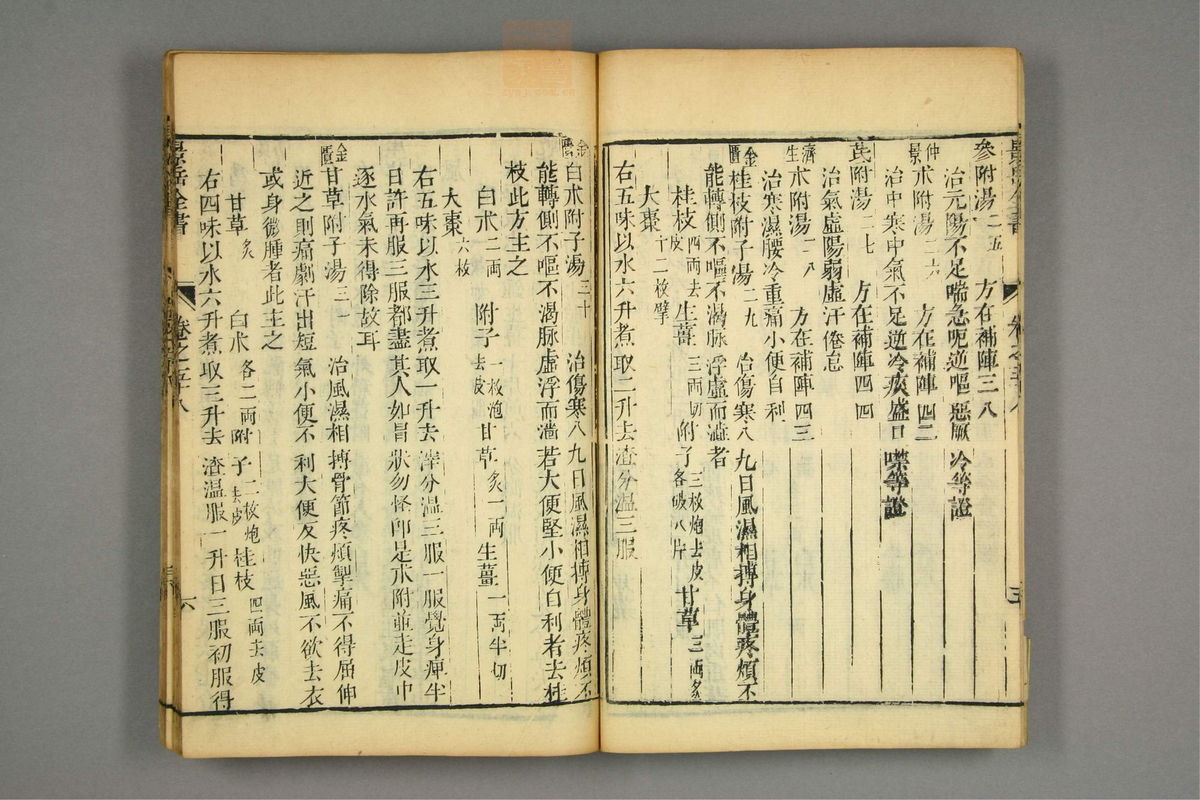 參附湯二五　方在補陣三八
治元陽不足喘急呃逆嘔惡厥冷等證
仲景朮附湯二六　方在補陣四二
治中寒中氣不足逆冷痰盛口噤等證
芪附湯二七　方在補陣四四
治氣虛陽弱虛汗倦怠
濟生朮附湯二八　方在補陣四三
治寒濕腰冷重痛小便自利
金匱桂枝附子湯二九　治傷寒八九日風濕相搏身體疼煩不
能轉側不嘔不渴脉浮虛而濇者
桂枝四兩去皮　生薑三兩切　附子三枚炮去皮各破八片　甘草三兩炙
大棗十二枚擘
右五味以水六升煮取二升去渣分溫三服
金匱白朮附子湯三十　治傷寒八九日風濕相搏身體疼煩不
能轉側不嘔不渴脉虛浮而濇若大便堅小便自利者去桂
枝此方主之
白朮二兩　附子一枚炮去皮　甘草炙一兩　生薑一兩半切
大棗六枚
右五味以水三升煮取一升去滓分溫三服一服覺身痺半
日許再服三服都盡其人如冒狀勿怪卽是朮附並走皮中
逐水氣未得除故耳
金匱甘草附子湯三一　治風濕相搏骨節疼煩掣痛不得屈伸
近之則痛劇汗出短氣小便不利大便反快惡風不欲去衣
或身微腫者此主之
甘草炙　白朮各二兩　附子二枚炮去皮　桂枝四兩去皮
右四味以水六升煮取三升去渣溫服一升日三服初服得
景岳全書　卷之五十八　六